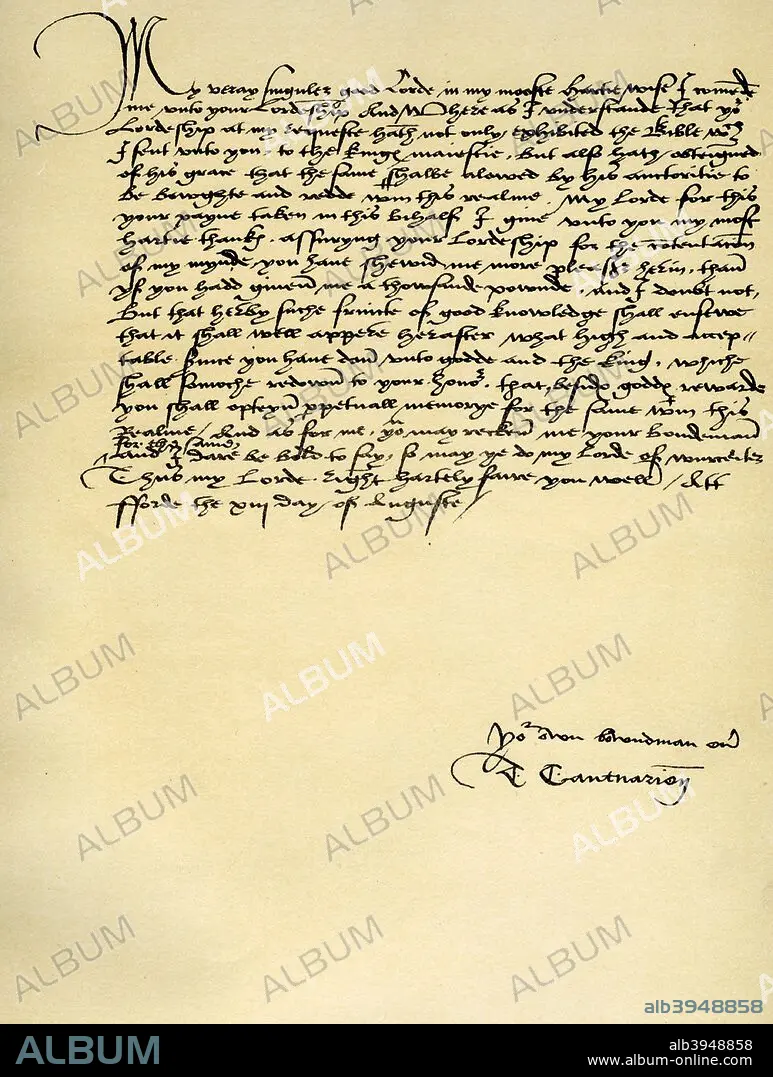 My veray singuler good Lorde in my mooste hartie wise I comēde
me unto your Lordeship And Where as I understande that yor
Lordeship at my requeste hath not only exhibited the Bible wch
I sent unto you, to the kinges maiestie, But also hath obteigned
of his grace that the same shalbe alowed by his auctoritie to
be bowghte and redde wtin this realme, My Lorde for this
your payne taken in this bihalf I give unto you my most
hartie thankes, assuryng your Lordeship for the cōtentacion
of my mynde, you have shewid me more pleasr herin, than
yf you hadd gieven me a thowsande pownde, And I doubt not,
But that hereby suche fruicte of good knowledge shall ensewe
that it shall well appere herafter what high and accep=
table service you have don unto godde and the king, whiche
shall somoche redown to your honor, that, besides goddes rewarde
you shall opteyn ppetuall memorye for the same wtin this
Realme, And as for me, yo may recken me your bondeman
for the same,
And I dare be bold to say, so may ye do my Lorde of wurceiter
Thus my Lorde right hartely fare you well, Att
fforde the xiii day of Auguste
Yor own bowndman ever
T Cantuarien
ALBUM
alb3948858
ALBUM
alb3948858
www.album-online.com